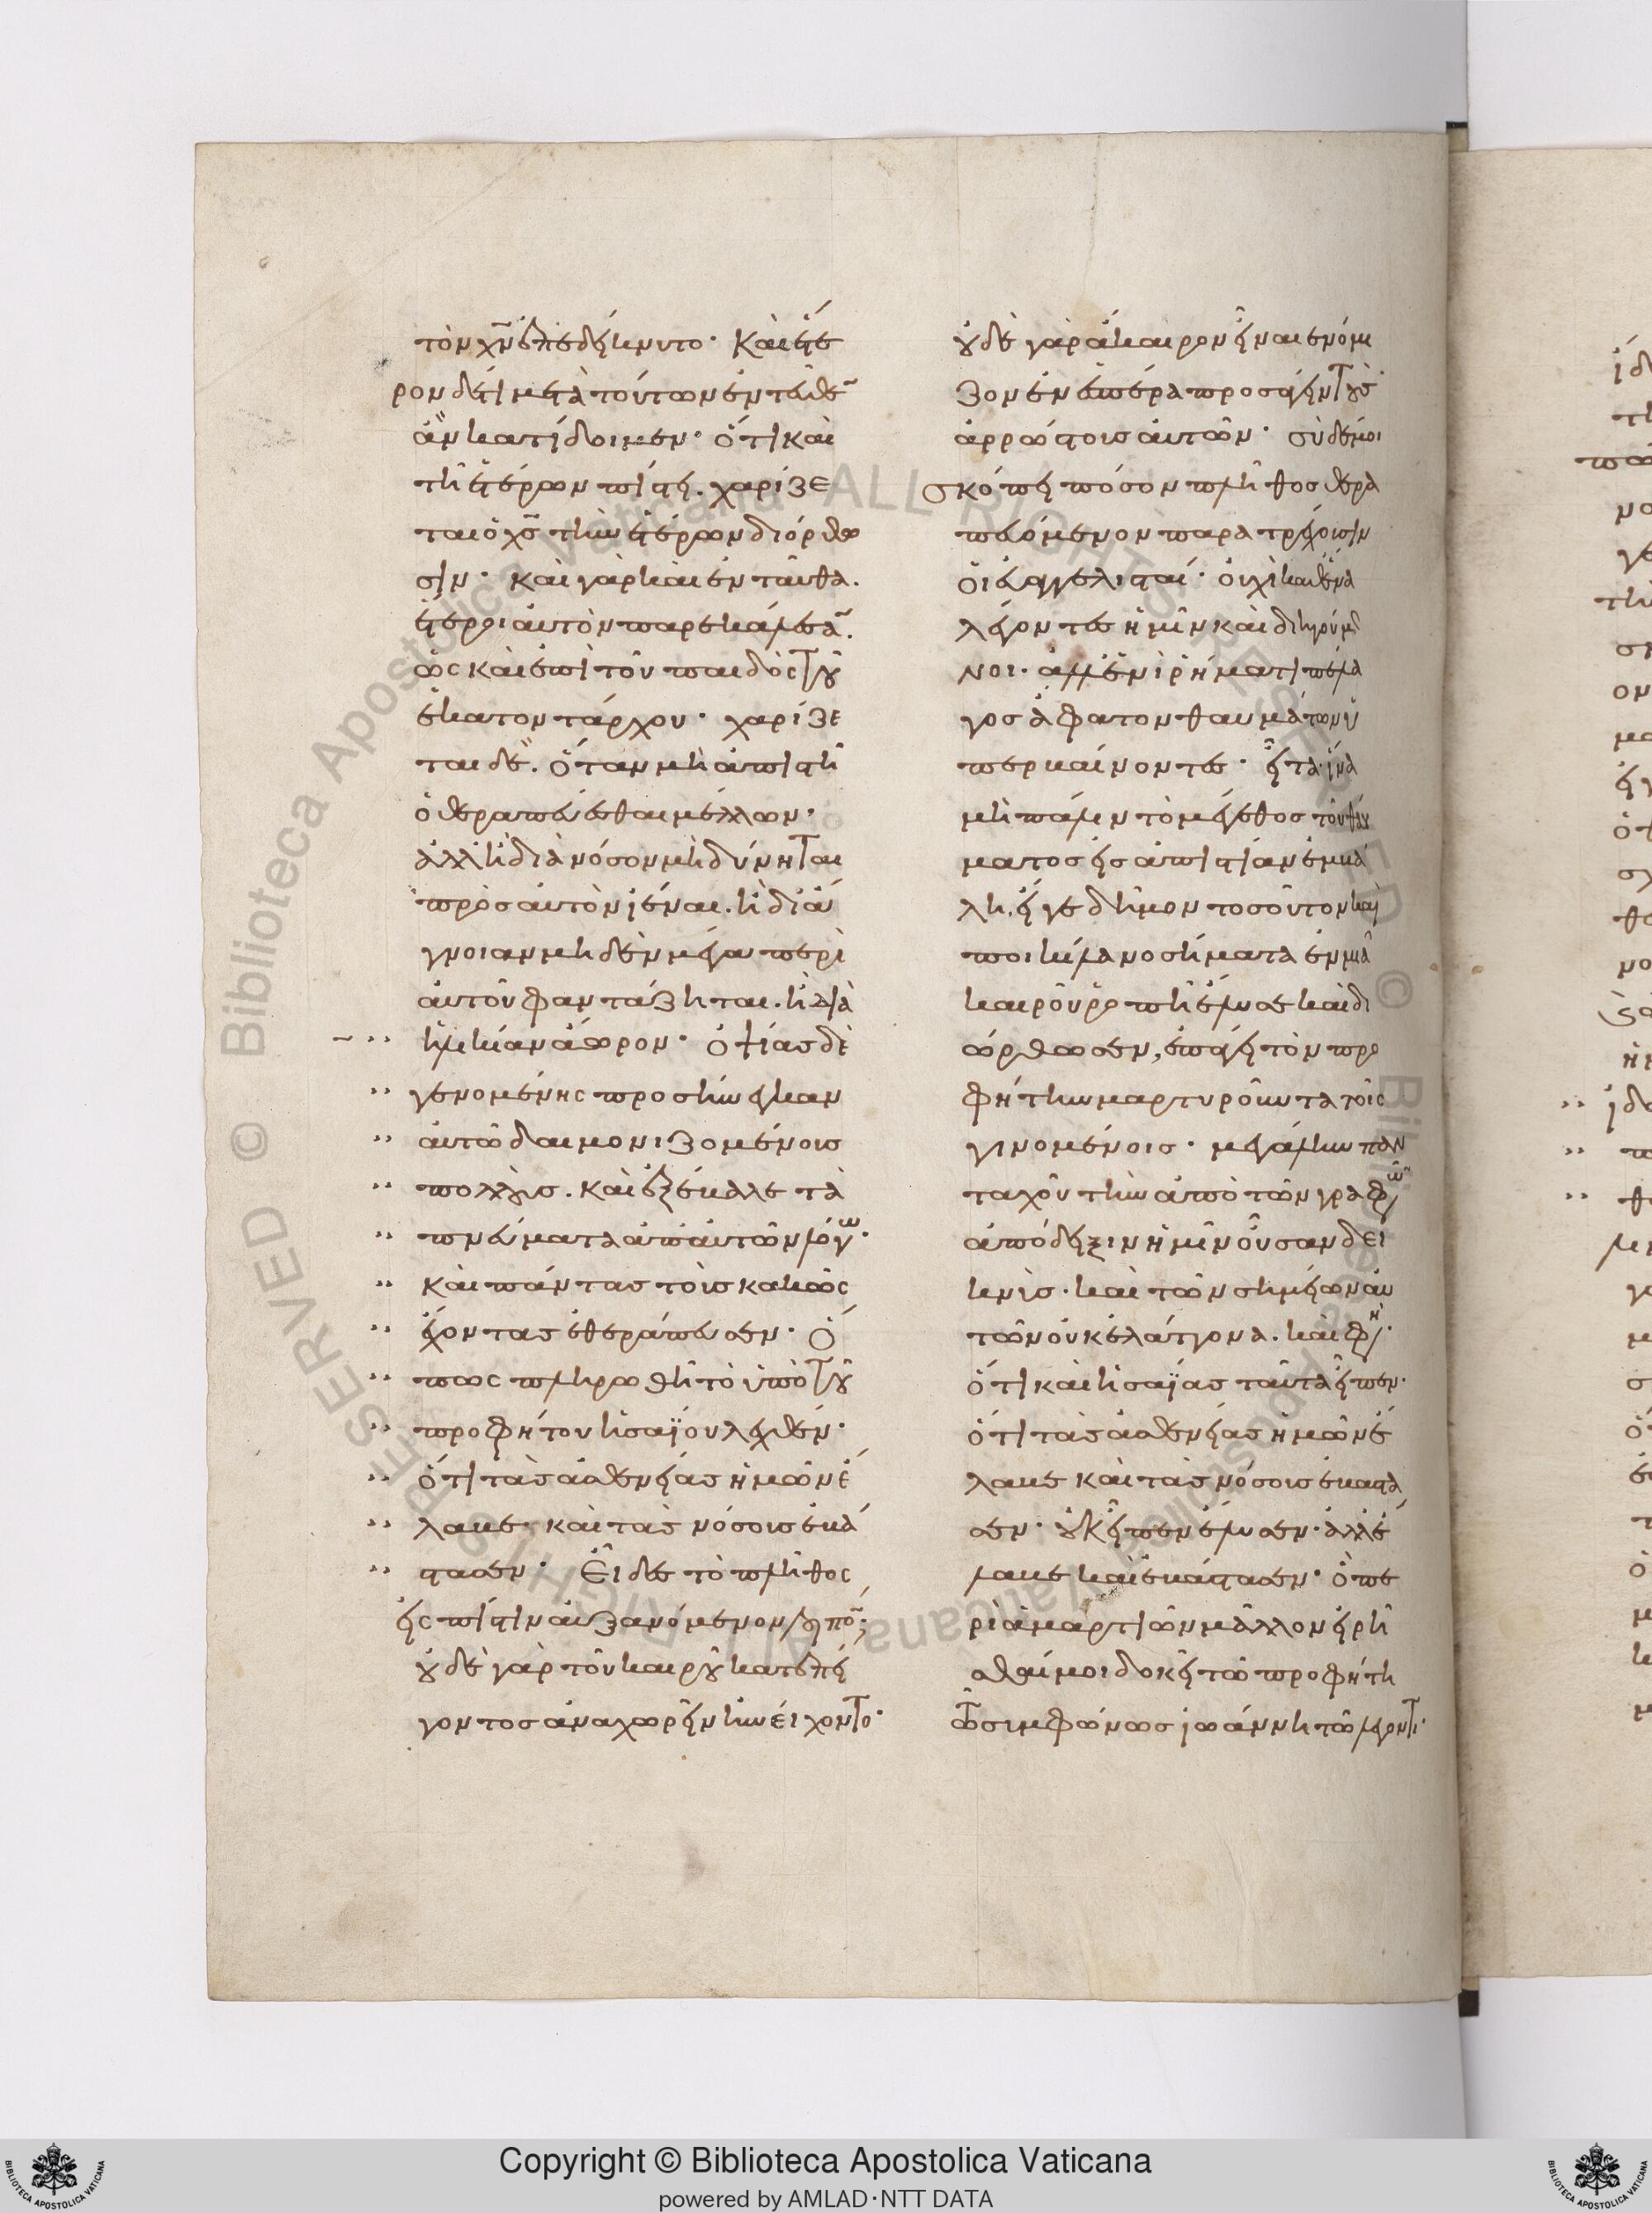 τὸν χ̅ν ἐπεδείκνυτο· Καὶ ἕτε
ρον δέ τι μετὰ τούτων ἐντεῦθε̅
ἂν κατίδοιμεν· ὅτι καὶ
τῆ ἑτέρων πίστει. χαρίζε
ται ὁ χ̅ς τὴν ἑτέρων διόρθω
σιν· καὶ γὰρ καὶ ἐνταῦθα.
ἕτεροι αὐτὸν παρεκάλεσα̅.
ὡς καὶ ἐπὶ τοῦ παιδὸς τοῦ
ἑκατοντάρχου· χαρίζε
ται δὲ. ὅταν μὴ ἀπιστῆ
ὁ θεραπεύεσθαι μέλλων·
ἀλλ ἢ διὰ νόσον μὴ δύνηται
πρὸς αὐτὸν ἰέναι. ἢ δι ἄ
γνοιαν μηδὲν μέγα περὶ
αὐτοῦ φαντάζηται. ἢ διὰ
ἡλικίαν ἄωρον· Ὀψίας δὲ
γενομένης προσήνεγκαν
αὐτῶ δαιμονιζομένους
πολλοὺς. καὶ ἐξέβαλε τὰ
πνεύματα ἀπ αὐτῶν λόγω·
Καὶ πάντας τοὺς κακῶς
ἔχοντας ἐθεράπευσεν· Ὅ
πως πληρωθῆ τὸ ὑπὸ τοῦ
προφήτου ἡσαΐου λεχθέν·
ὅτι τὰς ἀσθενείας ἡμῶν ἔ
λαβε· καὶ τὰς νόσους ἐβά
στασεν· Εἶδες τὸ πλῆθος
εἰς πίστιν αὐξανόμενον λοιπό̅;
οὐδὲ γὰρ τοῦ καιροῦ κατεπεί
γοντος ἀναχωρεῖν ἠνείχοντο·
οὐδὲ γὰρ ἄκαιρον εἶναι ἐνόμι
ζον ἐν ἑσπέρα προσάγειν τοὺς
ἀρρώστους αὐτῶν· σὺ δέ μοι
σκόπει πόσον πλῆθος θερα
πευόμενον παρατρέχουσιν
οἱ εὐαγγελισταί· οὐχὶ καθένα
λέγοντες ἡμῖν καὶ διηγούμε
νοι· ἀλλ ἑνὶ ῥήματι πέλα
γος ἄφατον θαυμάτων ὑ
περβαίνοντες· εἶτα ἵνα
μὴ πάλιν τὸ μέγεθος τοῦ θαύ
ματος εἰς ἀπιστίαν ἐμβά
λη, εἴγε δῆμον τοσοῦτον καὶ
ποικίλα νοσήματα ἐν μιᾶ
καιροῦ ῥοπῆ ἔλυσε καὶ δι
ώρθωσεν, ἐπάγει τὸν προ
φήτην μαρτυροῦντα τοῖς
γινομένοις· μεγάλην παν
ταχοῦ τὴν ἀπὸ τῶν γραφῶν
ἀπόδειξιν ἡμῖν οὖσαν δει
κνὺς· καὶ τῶν σημείων αὐ
τῶν οὐκ ἐλάττονα. καὶ φησὶ·
ὅτι καὶ ἡσαΐας ταῦτα εἶπεν·
ὅτι τὰς ἀσθενείας ἡμῶν ἔ
λαβε καὶ τὰς νόσους ἐβάστα
σεν· οὐκ εἶπεν ἔλυσεν· ἀλλ ἔ
λαβε καὶ ἐβάστασεν· ὅπε
ρὶ ἁμαρτιῶν μᾶλλον εἰρῆ
σθαί μοι δοκεῖ τῶ προφήτη
συμφώνως ἰωάννη τῶ λέγοντι·